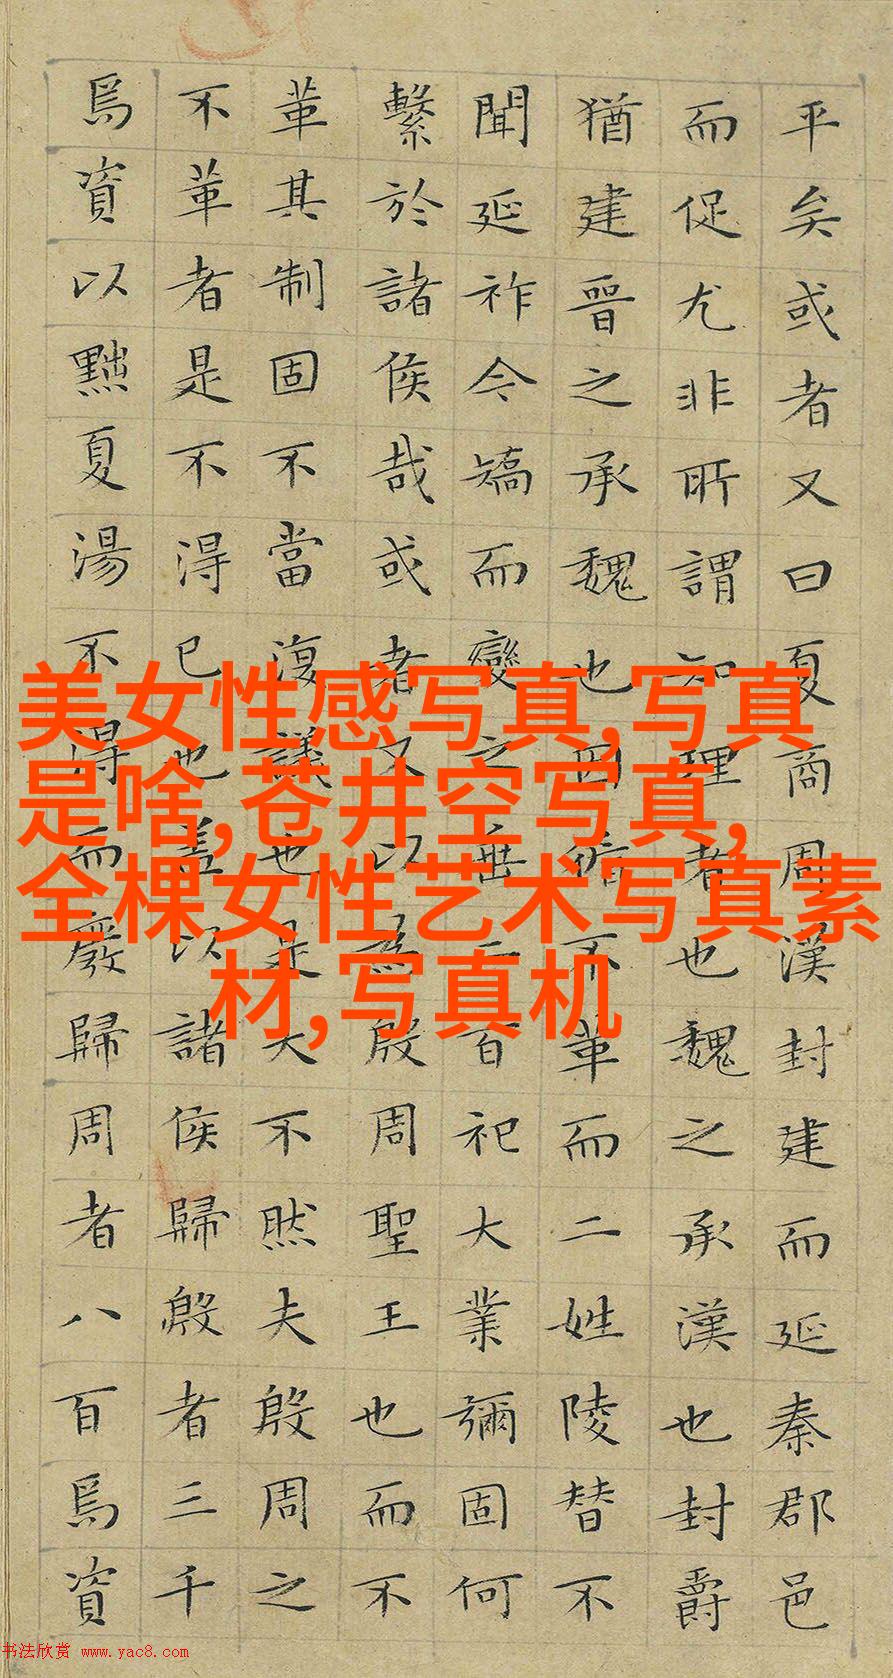 平矣或者又曰夏商周漢封建而延秦郡邑
而促尤非所謂知理者也魏之承漢也封爵
猶建晉之承魏也因循不革而二姓陵替不
聞延祚今矯而變之垂二百祀大業彌固何
繫於諸侯哉或者又以為殷周聖王也而不
革其制固不當復議也是大不然夫殷周之
不革者是不得已也蓋以諸侯歸殷者三千
焉資以黜夏湯不得而廢歸周者八百焉資
美女性感写真,写真
是啥,苍井空写真,
全棵女性艺术写真素
材,写真机
书法欣赏 www.yac8.com